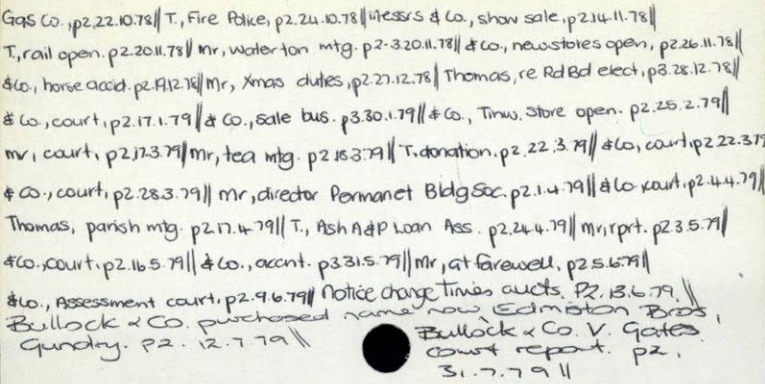 Gas Co., p2,22.10.78|| T., Fire Police, p2.24.10.78|| Messrs & Co., show sale, p2.14.11.78||
T, rail open. p2.20.11.78|| Mr, Waterton mtg. p2-3.20.11.78|| & Co., new stores open, p2.26.11.78||
& Co., horse accid. p2.19.12.78|| Mr, Xmas duties, p2.27.12.78|| Thomas, re Rd Bd elect, p3.28.12.78||
& Co., court, p2.17.1.79|| & Co., sale bus. p3.30.1.79|| & Co., Tinw. store open. p2.25.2.79||
Mr, court, p2,17.3.79|| Mr, tea mtg. p2.18.3.79|| T. donation. p2.22.3.79|| & Co, court, p2 22.3.79
& Co., court, p2.28.3.79|| Mr, director Permanet Bldg Soc. p2.1.4.79|| & Co court, p2.4.4.79||
Thomas, parish mtg. p2.17.4.79|| T., Ash A&P Loan Ass. p2,24.4.79|| Mr, rprt. p2.3.5.79||
& Co., court, p2.16.5.79|| & Co., accnt. p3.31.5.79|| Mr, at farewell, p2 5.6.79||
& Co., Assessment court, p2.9.6.79|| Notice change Times aucts. P2.13.6.79.||
Bullock & Co. purchased name now, Edmiston Bros,
Gundry. p2. 12.7.79||
Bullock & Co. V. Gates
court report. p2,
31.7.79||